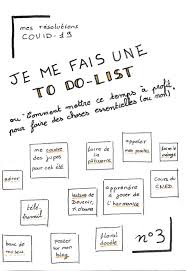 mes résolutions
COVID-19
JE ME FAIS UNE
TO DO-LIST
ou : Comment mettre ce temps à profit
pour faire des choses essentielles (ou non).
me coudre
des jupes
pour cet été
faire de la
pâtisserie
appeler
mes potes
faire le
ménage
dormir
télé
travail
lecture de
Devenir,
M. Obama
apprendre
à jouer de
l'harmonica
cours du
CNED
banc de
muscu
poster
sur mon
blog
floral
doodle
n°3